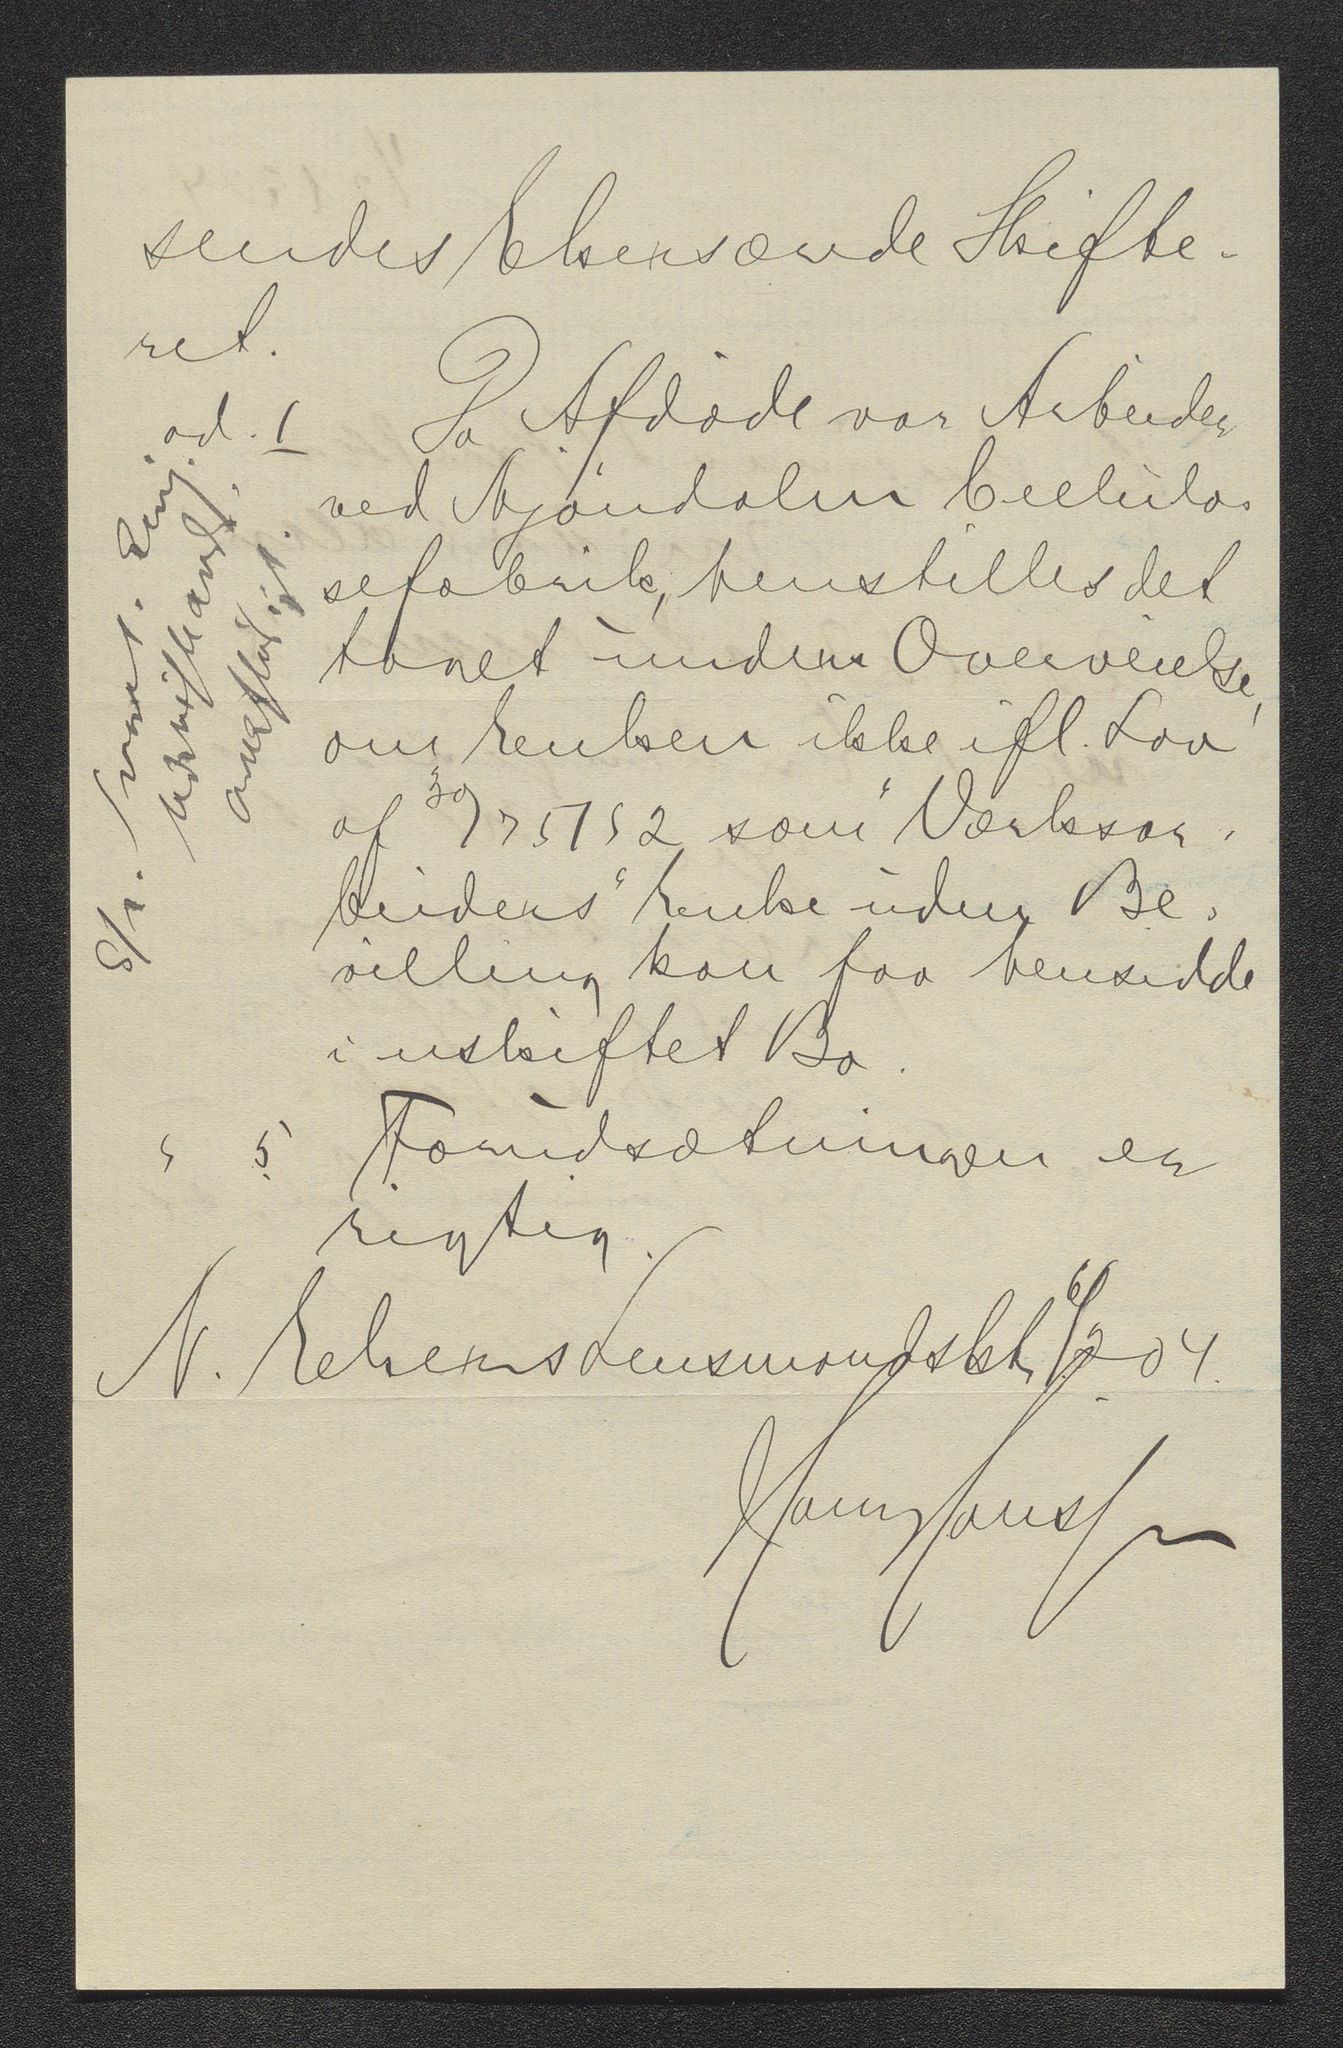 sendes Ekersørede Skifte-
ret.
ad. 1
Da Afdøde var Arbeider
ved Mjøndalen Cellulo-
sefabrik, henstilles det
taget under Overveielse,
om Enken ikke ifl. Lov
af 30/7 51 § 2 som "Værksar-
beiders" Enke uden Be-
villing kan faa hensidde
i uskiftet Bo.
" 5) Forudsætningen er
rigtig.
N. Ekers Lensmandsktr 6/2 04.
8/2. Svart.